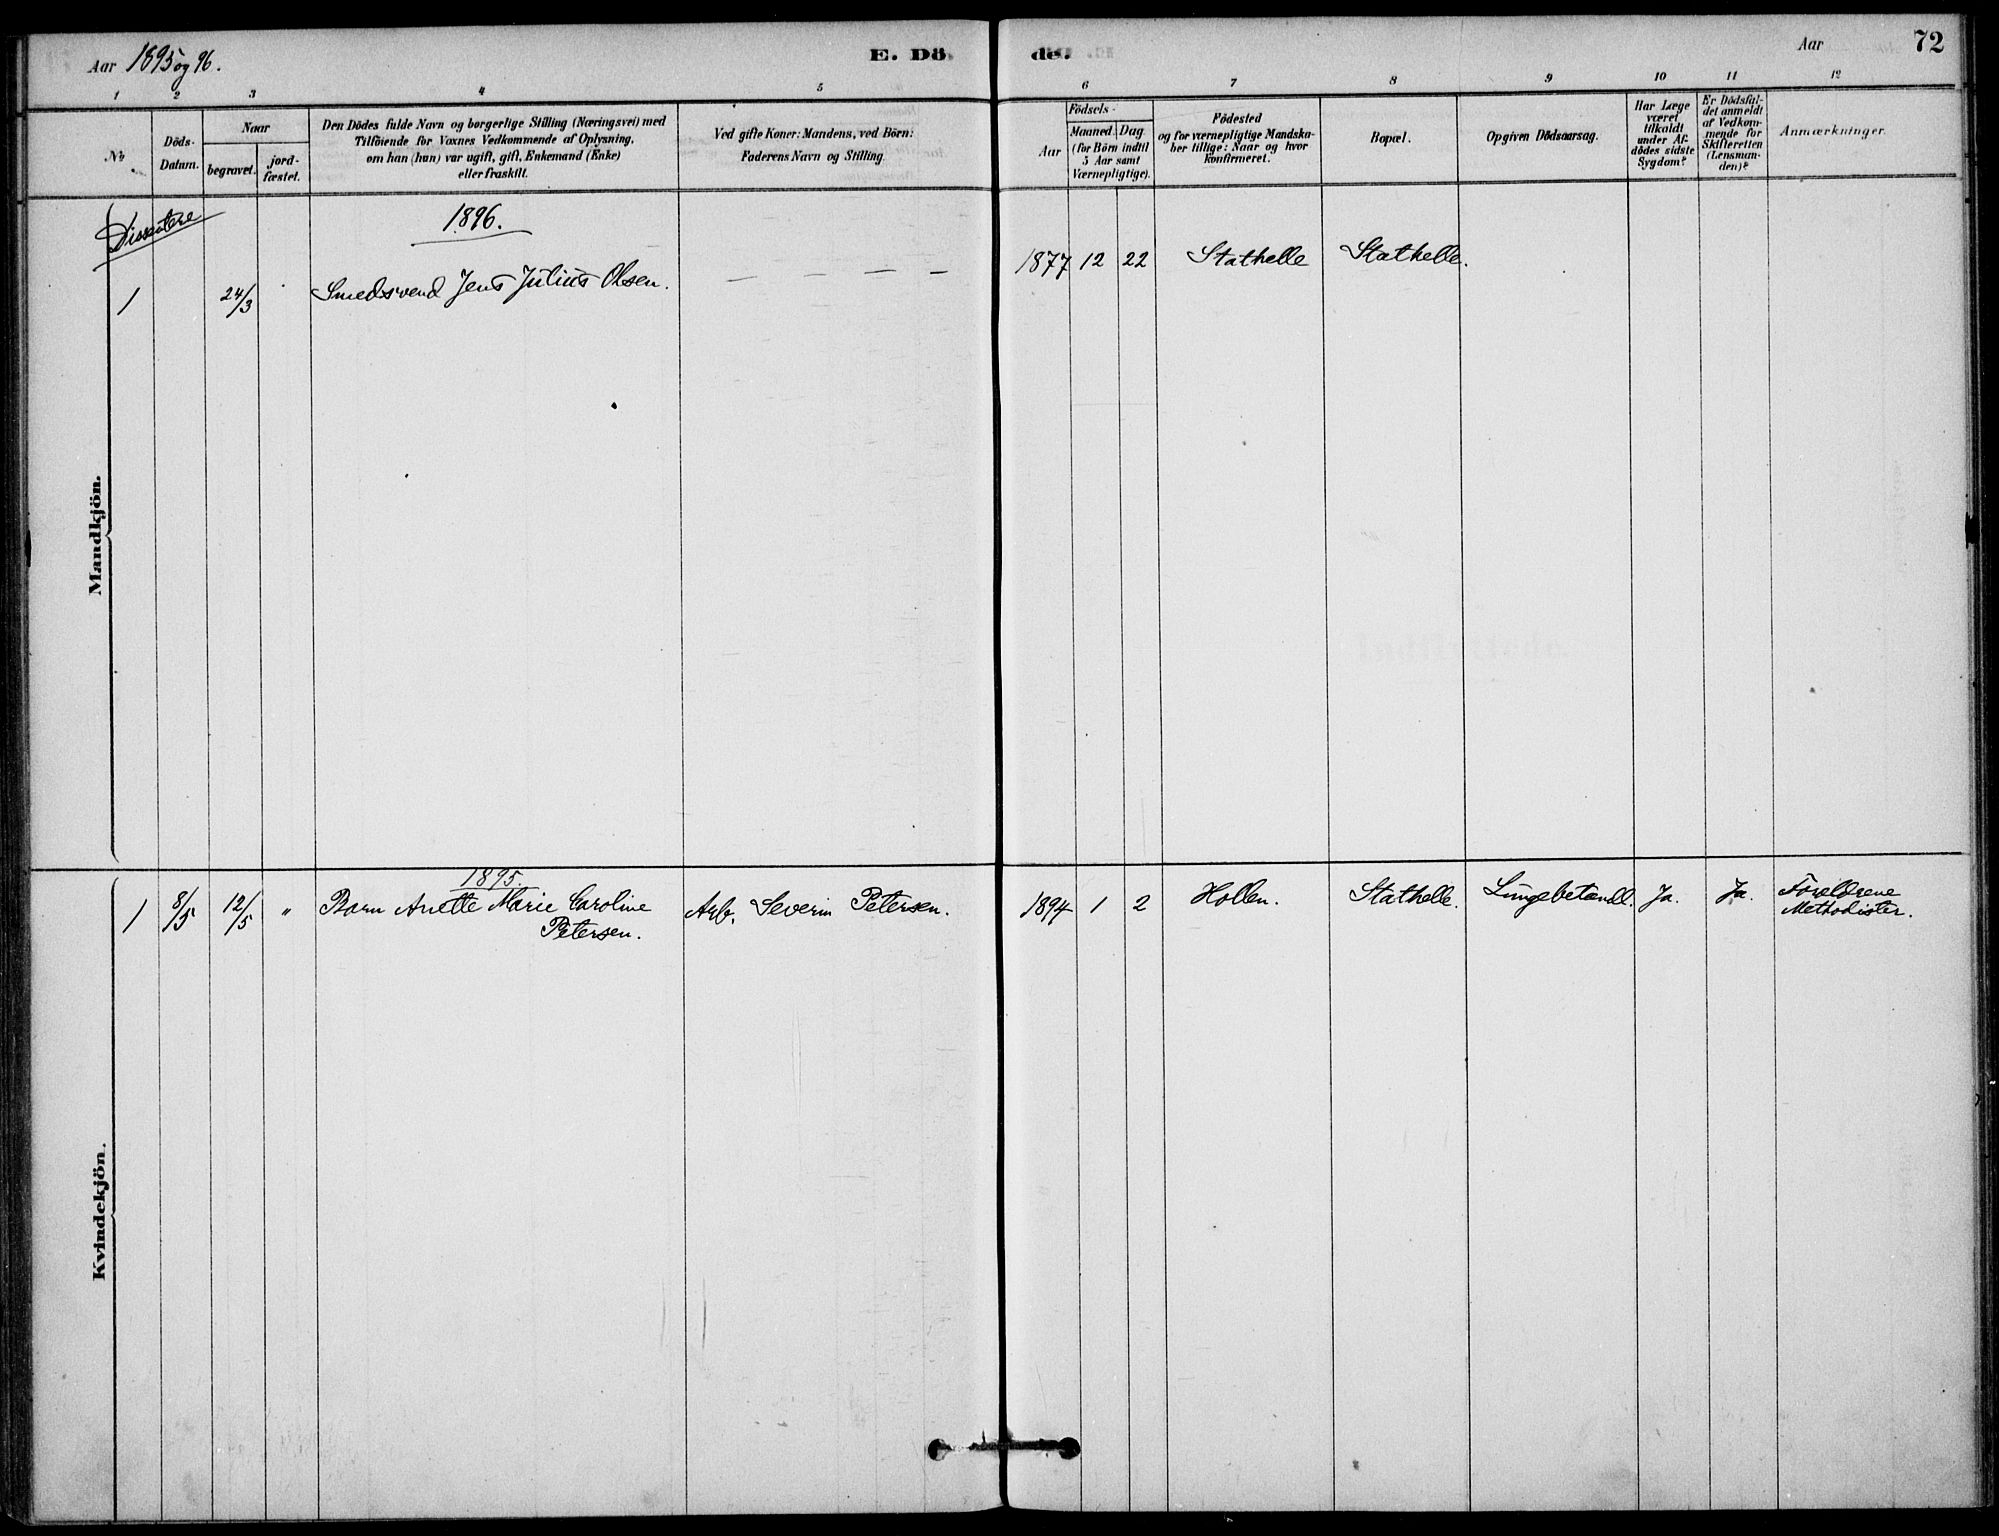 Aar 1895 og 96.
E. Dö de.
Aar
72
1 2 3 4 5 6 7 8 9 10 11 12
No
Döds-
Datum.
Naar
begravet.
jord-
fæstet.
Den Dödes fulde Navn og borgerlige Stilling (Næringsvei) med
Tilföiende for Voxnes Vedkommende af Oplysning,
om han (hun) var ugift, gift, Enkemand (Enke)
eller fraskilt.
Ved gifte Koner: Mandens, ved Börn:
Faderens Navn og Stilling.
Födsels-
Aar
Maaned. Dag.
(for Börn indtil
5 Aar samt
Værnepligtige).
Födested
og for værnepligtige Mandska-
ber tillige: Naar og hvor
konfirmeret.
Bopæl.
Opgiven Dödsaarsag.
Har Læge
været
tilkaldt
under Af-
dödes sidste
Sygdom?
Er Dödsfal-
det anmeldt
af Vedkom-
mende for
Skifteretten
(Lensman-
den)?
Anmærkninger.
Dissentere
1896.
Mandkjön.
1 24/3 Smedsvend Jens Julius Olsen. — — — — 1877 12 22 Stathelle Stathelle.
1895.
Kvindekjön.
1 8/5 12/5 " Barn Anette Marie Caroline Arb. Severin Petersen. 1894 1 2 Hollen. Stathelle. Lungebetændl. Ja. Ja. Forældrene
Petersen. Methodister.